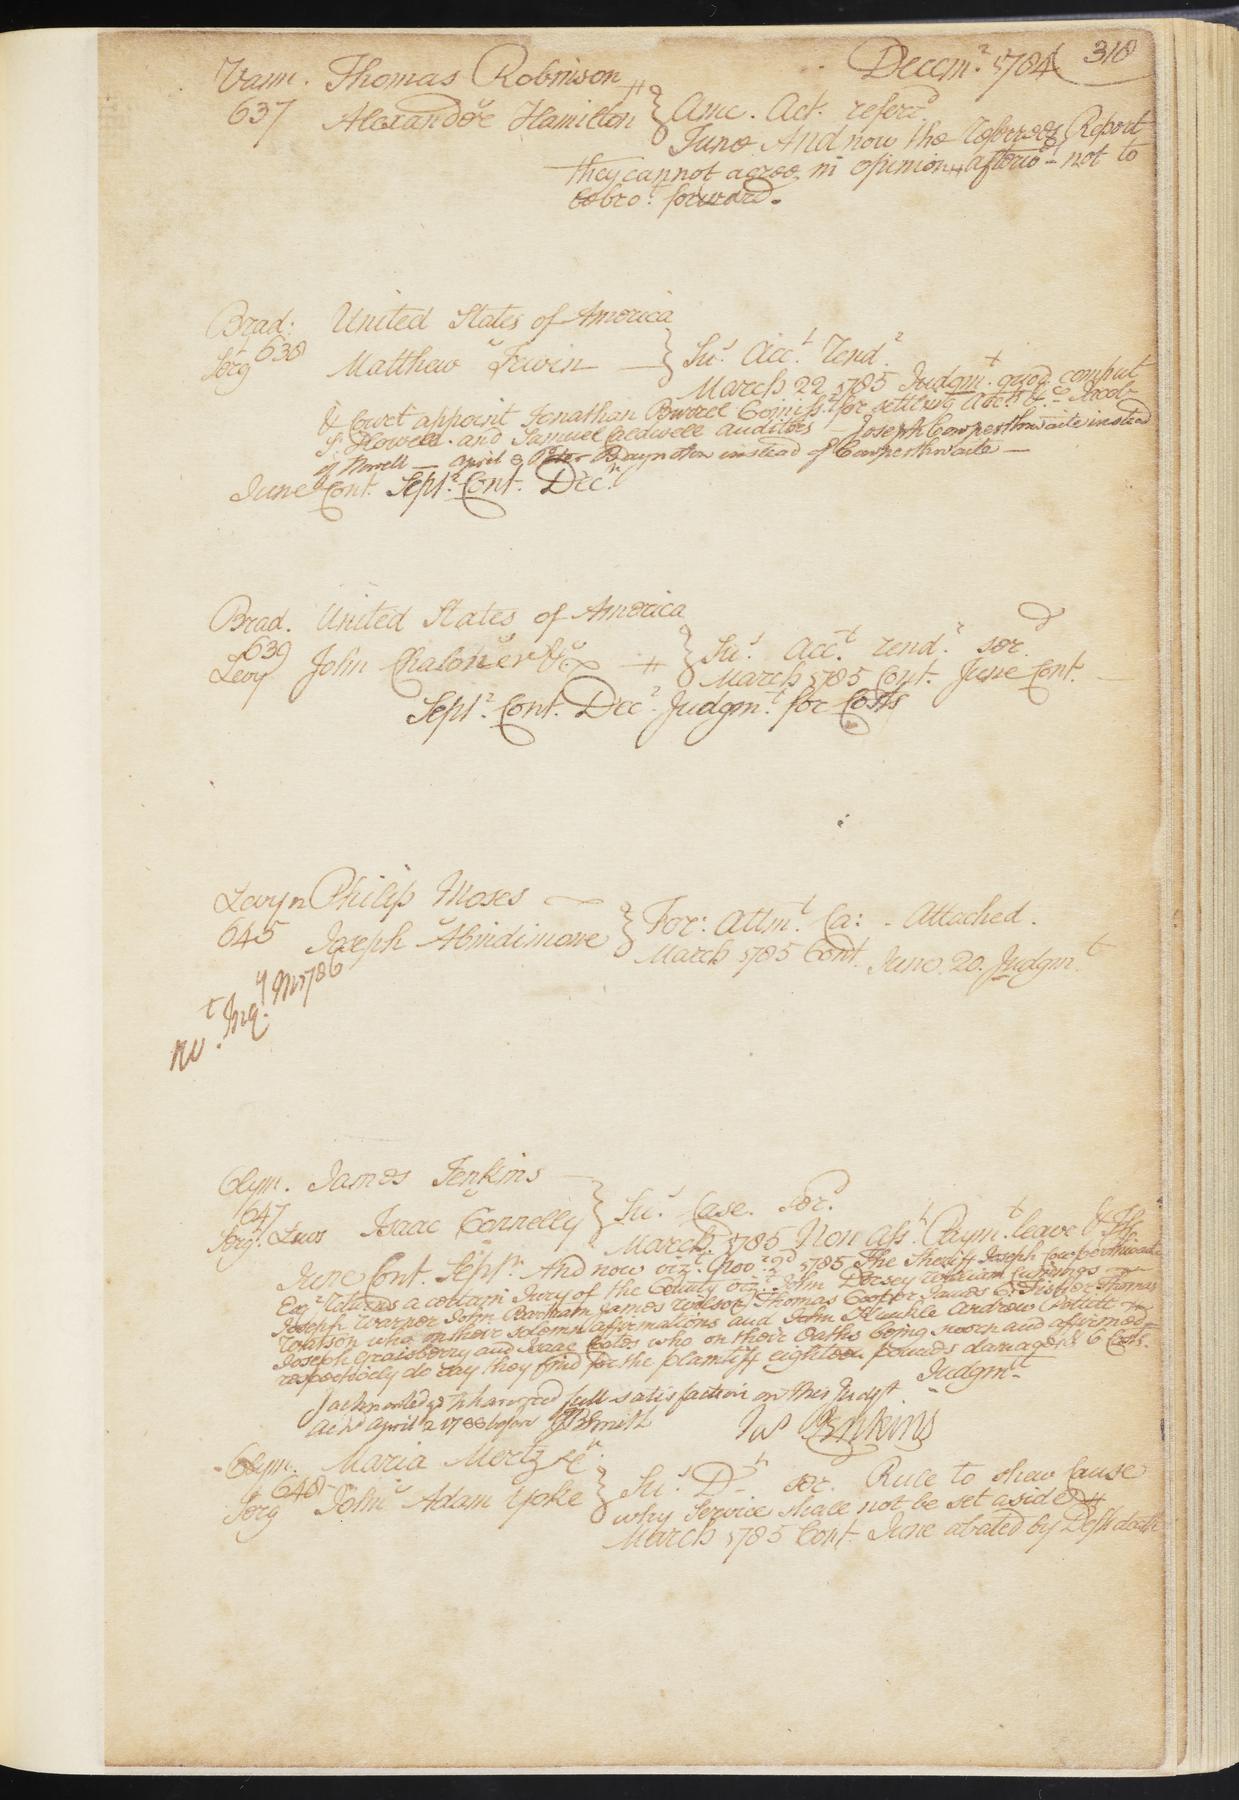 Decem.r 1784 318
Vann. Thomas Robinson
637 Alexander Hamilton } Amc. Act. referd
June And now the Referees Report
they cannot agree in opinion afterwd not to
be bro.t forward.
Brad: United States of America
638 Matthew Irwin } Su.s Acc.t Rend.r
Serg March 22 1785 Judgm.t quod comput
& Court appoint Jonathan Burrel Comiss.r for settling Acc.ts &c Jacob
S. Howell and Samuel Caldwell auditors Joseph Cowperthwaite instead
of Howell April 8 Peter Baynton instead of Cowperthwaite
June Cont. Sept.r Cont. Dec.r
Brad. United States of America
639 John Chaloner &c } Su.s Acc.t rend.r ser.d
Levy March 1785 Cont. June Cont.
Sept.r Cont. Dec.r Judgm.t for Costs
Levy n Philip Moses
645 Joseph Abindimore } For: Attm.t Ca: Attached.
March 1785 Cont. June 20. Judgm.t
Inq.y M 1786
Clym. James Jenkins
647 Isaac Connelly } Su.s Case. ser.d
Serg. Lews March 1785 Non Ass.t Paym.t leave &
June Cont. Sept.r And now viz.t Nov.r 2d 1785 The Sheriff Joseph Cowperthwaite
Esq.r Returns a certain Jury of the County viz.t John Dorsey William Cumings
Joseph Warner John Bartram James Wilson Thomas Cooper James C. Fisher Thomas
Watson who on their solemn affirmations and John Kunkle Andrew
Joseph Graisberry and Isaac Coates who on their Oaths being sworn and affirmed
respectively do say they find for the plaintiff eighteen pounds damages & 6 Costs.
Judgm.t
I acknowledge to have recd full satisfaction on this Judgt
Ackd April 2 1788 before Smith Jas Jenkins
Clym. Maria Mertz
648 John Adam Yoke } Su.s D ser. Rule to shew Cause
Serg why Service shall not be set aside
March 1785 Cont. June abated by Defts death